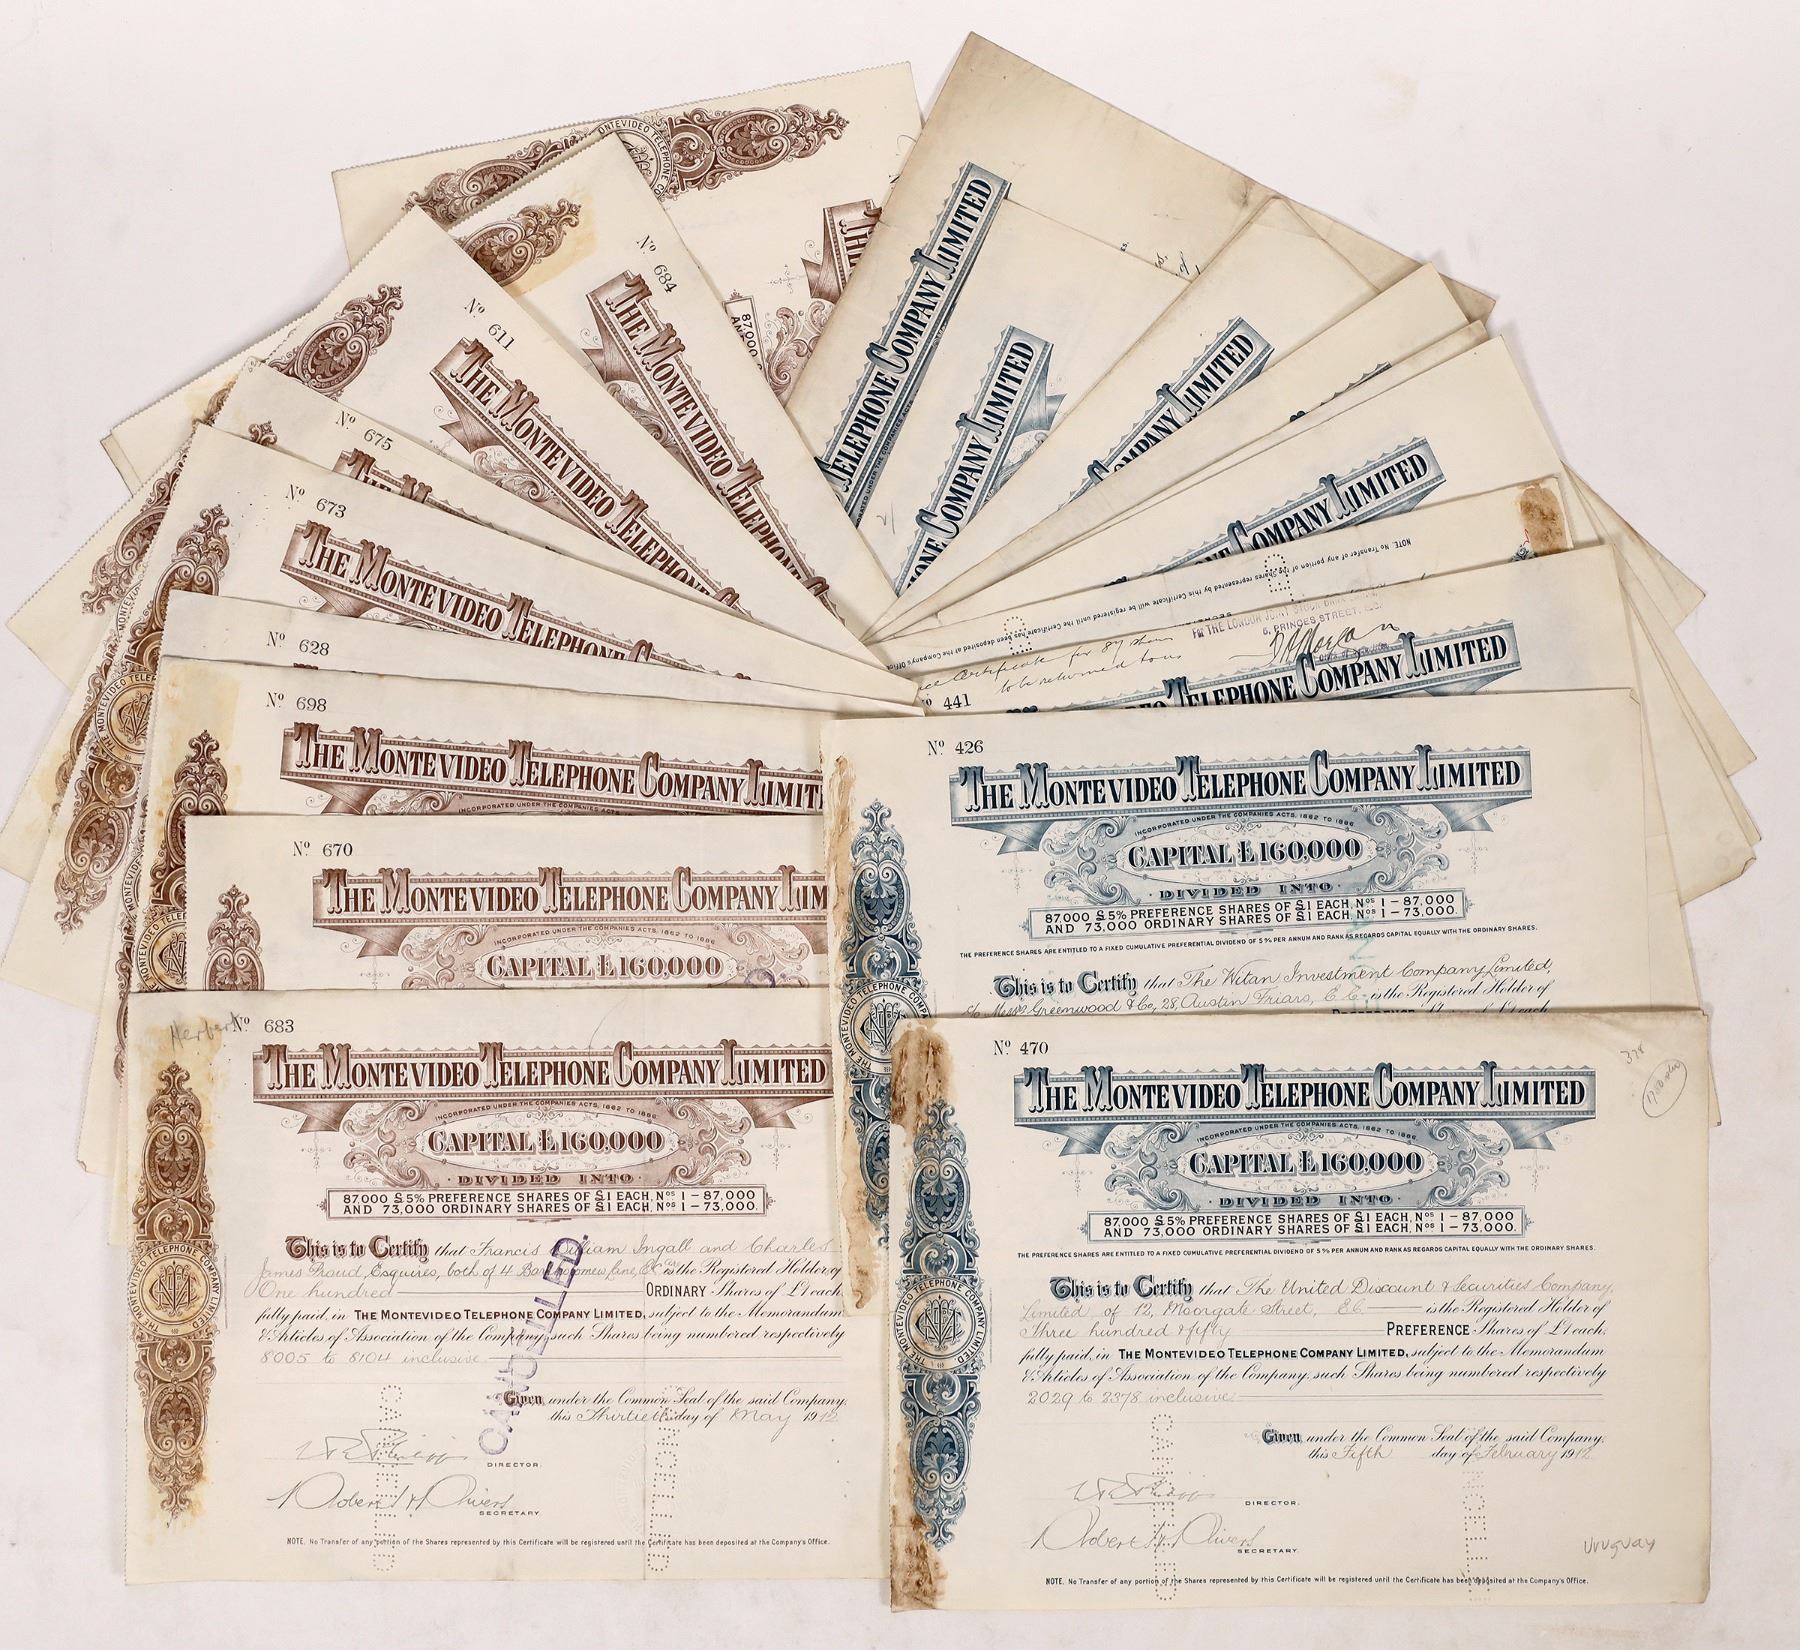 MONTEVIDEO TELEPHONE CO
87,000
AN
THE
Nº 684
THE MONTEVIDEO TELEPHONE
Nº 611
THE MONTEVIDEO TELEPHONE
Nº 675
Nº 673
THE MONTEVIDEO TELEPHONE
Nº 628
Nº 698
THE MONTEVIDEO TELEPHONE COMPANY LIMIT
INCORPORATED UNDER THE COMPANIES ACTS, 1862 TO 1886
Nº 670
THE MONTEVIDEO TELEPHONE COMPANY LIM
INCORPORATED UNDER THE COMPANIES ACTS, 1862 TO 1886
CAPITAL £160,000
Herbert Nº 683
THE MONTEVIDEO TELEPHONE COMPANY LIMITED
INCORPORATED UNDER THE COMPANIES ACTS, 1862 TO 1886
CAPITAL £160,000
DIVIDED INTO
87,000 £5% PREFERENCE SHARES OF £1 EACH, Nos 1-87,000
AND 73,000 ORDINARY SHARES OF £1 EACH, Nos 1-73,000.
This is to Certify that Francis William Ingall and Charles
James Proud, Esquires, both of 4 Bartholomew Lane, E.C. is the Registered Holder of
One hundred ORDINARY Shares of £1 each,
fully paid, in THE MONTEVIDEO TELEPHONE COMPANY LIMITED, subject to the Memorandum
& Articles of Association of the Company, such Shares being numbered respectively
8005 to 8104 inclusive
Given under the Common Seal of the said Company,
this Thirtieth day of May 1912
CANCELLED.
DIRECTOR.
SECRETARY.
NOTE. No Transfer of any portion of the Shares represented by this Certificate will be registered until the Certificate has been deposited at the Company's Office.
THE MONTEVIDEO TELEPHONE COMPANY LIMITED
TELEPHONE COMPANY LIMITED
COMPANY LIMITED
COMPANY LIMITED
COMPANY LIMITED
NOTE. No Transfer of any portion of the Shares represented by this Certificate will be registered until the Certificate has been deposited at the Company's Office
FOR THE LONDON JOINT STOCK BANK
5, PRINCES STREET, E.C.
Certificate for 87 shares
to be returned to us
Nº 441
TELEPHONE COMPANY LIMITED
Nº 426
THE MONTEVIDEO TELEPHONE COMPANY LIMITED
INCORPORATED UNDER THE COMPANIES ACTS, 1862 TO 1886
CAPITAL £160,000
DIVIDED INTO
87,000 £5% PREFERENCE SHARES OF £1 EACH, Nos 1-87,000
AND 73,000 ORDINARY SHARES OF £1 EACH, Nos 1-73,000.
THE PREFERENCE SHARES ARE ENTITLED TO A FIXED CUMULATIVE PREFERENTIAL DIVIDEND OF 5% PER ANNUM AND RANK AS REGARDS CAPITAL EQUALLY WITH THE ORDINARY SHARES.
This is to Certify that The Witan Investment Company Limited,
c/o Messrs Greenwood & Co, 28, Austin Friars, E.C. is the Registered Holder of
PREFERENCE Shares of £1 each
THE MONTEVIDEO TELEPHONE COMPANY
Nº 470
378
THE MONTEVIDEO TELEPHONE COMPANY LIMITED
INCORPORATED UNDER THE COMPANIES ACTS, 1862 TO 1886
CAPITAL £160,000
DIVIDED INTO
87,000 £5% PREFERENCE SHARES OF £1 EACH, Nos 1-87,000
AND 73,000 ORDINARY SHARES OF £1 EACH, Nos 1-73,000.
THE PREFERENCE SHARES ARE ENTITLED TO A FIXED CUMULATIVE PREFERENTIAL DIVIDEND OF 5% PER ANNUM AND RANK AS REGARDS CAPITAL EQUALLY WITH THE ORDINARY SHARES.
This is to Certify that The United Discount & Securities Company,
Limited of 12, Moorgate Street, E.C. is the Registered Holder of
Three hundred & fifty PREFERENCE Shares of £1 each,
fully paid, in THE MONTEVIDEO TELEPHONE COMPANY LIMITED, subject to the Memorandum
& Articles of Association of the Company, such Shares being numbered respectively
2029 to 2378 inclusive
Given under the Common Seal of the said Company,
this Fifth day of February 1912
DIRECTOR.
SECRETARY.
Uruguay
NOTE. No Transfer of any portion of the Shares represented by this Certificate will be registered until the Certificate has been deposited at the Company's Office.
THE MONTEVIDEO TELEPHONE COMPANY LIMITED